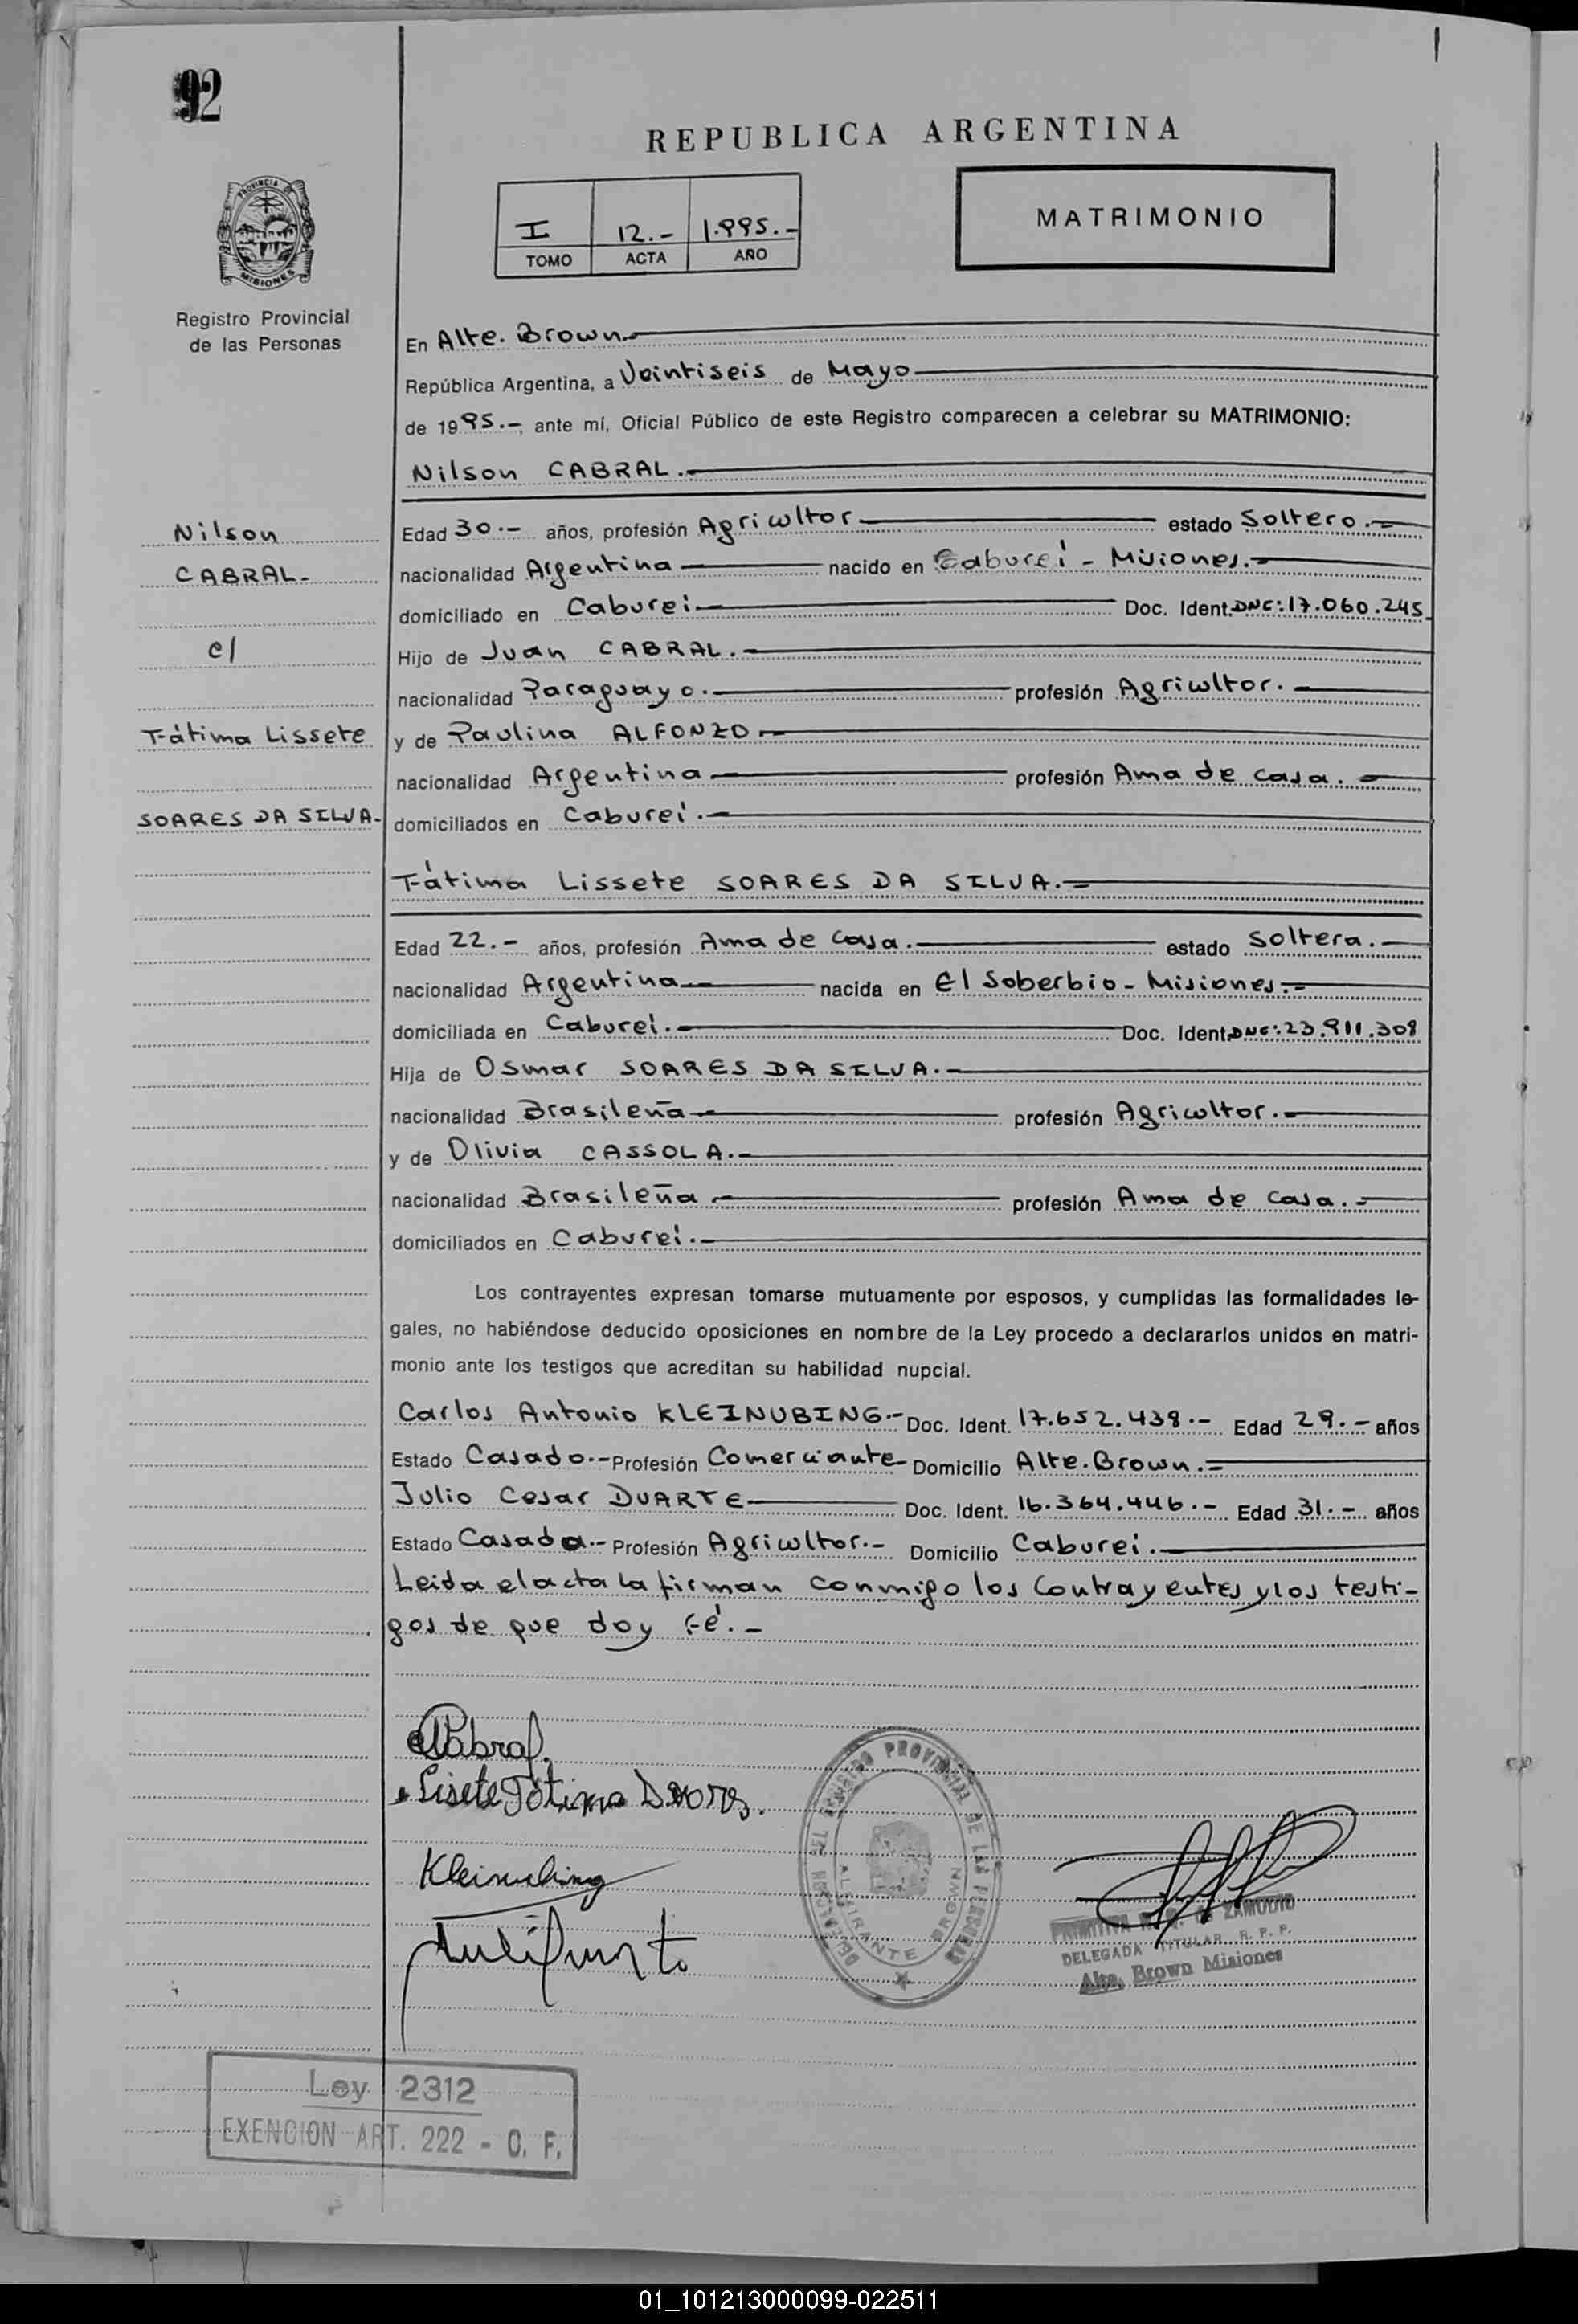 92
REPUBLICA ARGENTINA
PROVINCIA DE
MISIONES
I 12.- 1.995.-
TOMO ACTA AÑO
MATRIMONIO
Registro Provincial
de las Personas
En Alte. Brown.
República Argentina, a Veintiseis de Mayo
de 1995.-, ante mí, Oficial Público de este Registro comparecen a celebrar su MATRIMONIO:
Nilson CABRAL.
Nilson
CABRAL-
c/
Fátima Lissete
SOARES DA SILVA-
Edad 30.- años, profesión Agricultor estado Soltero.-
nacionalidad Argentina nacido en Caburei - Misiones.-
domiciliado en Caburei Doc. Ident. DNI: 17.060.245
Hijo de Juan CABRAL.-
nacionalidad Paraguayo.- profesión Agricultor.-
y de Paulina ALFONZO.-
nacionalidad Argentina profesión Ama de casa.-
domiciliados en Caburei.-
Fátima Lissete SOARES DA SILVA.-
Edad 22.- años, profesión Ama de casa.- estado Soltera.-
nacionalidad Argentina nacida en El Soberbio - Misiones.-
domiciliada en Caburei.- Doc. Ident. DNI: 23.911.309
Hija de Osmar SOARES DA SILVA.-
nacionalidad Brasileña profesión Agricultor.-
y de Olivia CASSOLA.-
nacionalidad Brasileña profesión Ama de casa.-
domiciliados en Caburei.-
Los contrayentes expresan tomarse mutuamente por esposos, y cumplidas las formalidades le-
gales, no habiéndose deducido oposiciones en nombre de la Ley procedo a declararlos unidos en matri-
monio ante los testigos que acreditan su habilidad nupcial.
Carlos Antonio KLEINUBING.- Doc. Ident. 17.652.439.- Edad 29.- años
Estado Casado.- Profesión Comerciante Domicilio Alte. Brown.-
Julio Cesar DUARTE Doc. Ident. 16.364.446.- Edad 31.- años
Estado Casado.- Profesión Agricultor.- Domicilio Caburei.-
Leida el acta la firman conmigo los Contrayentes y los testi-
gos de que doy Fé.-
Cabral.
Lisete Fátima
Kleinubing
DELEGACION DEL REGISTRO PROVINCIAL DE LAS PERSONAS
ALMIRANTE BROWN
PRIMITIVA ZAMUDIO
DELEGADA TITULAR R. P. P.
Alte. Brown Misiones
Ley 2312
EXENCION ART. 222 - C. F.
01_101213000099-022511